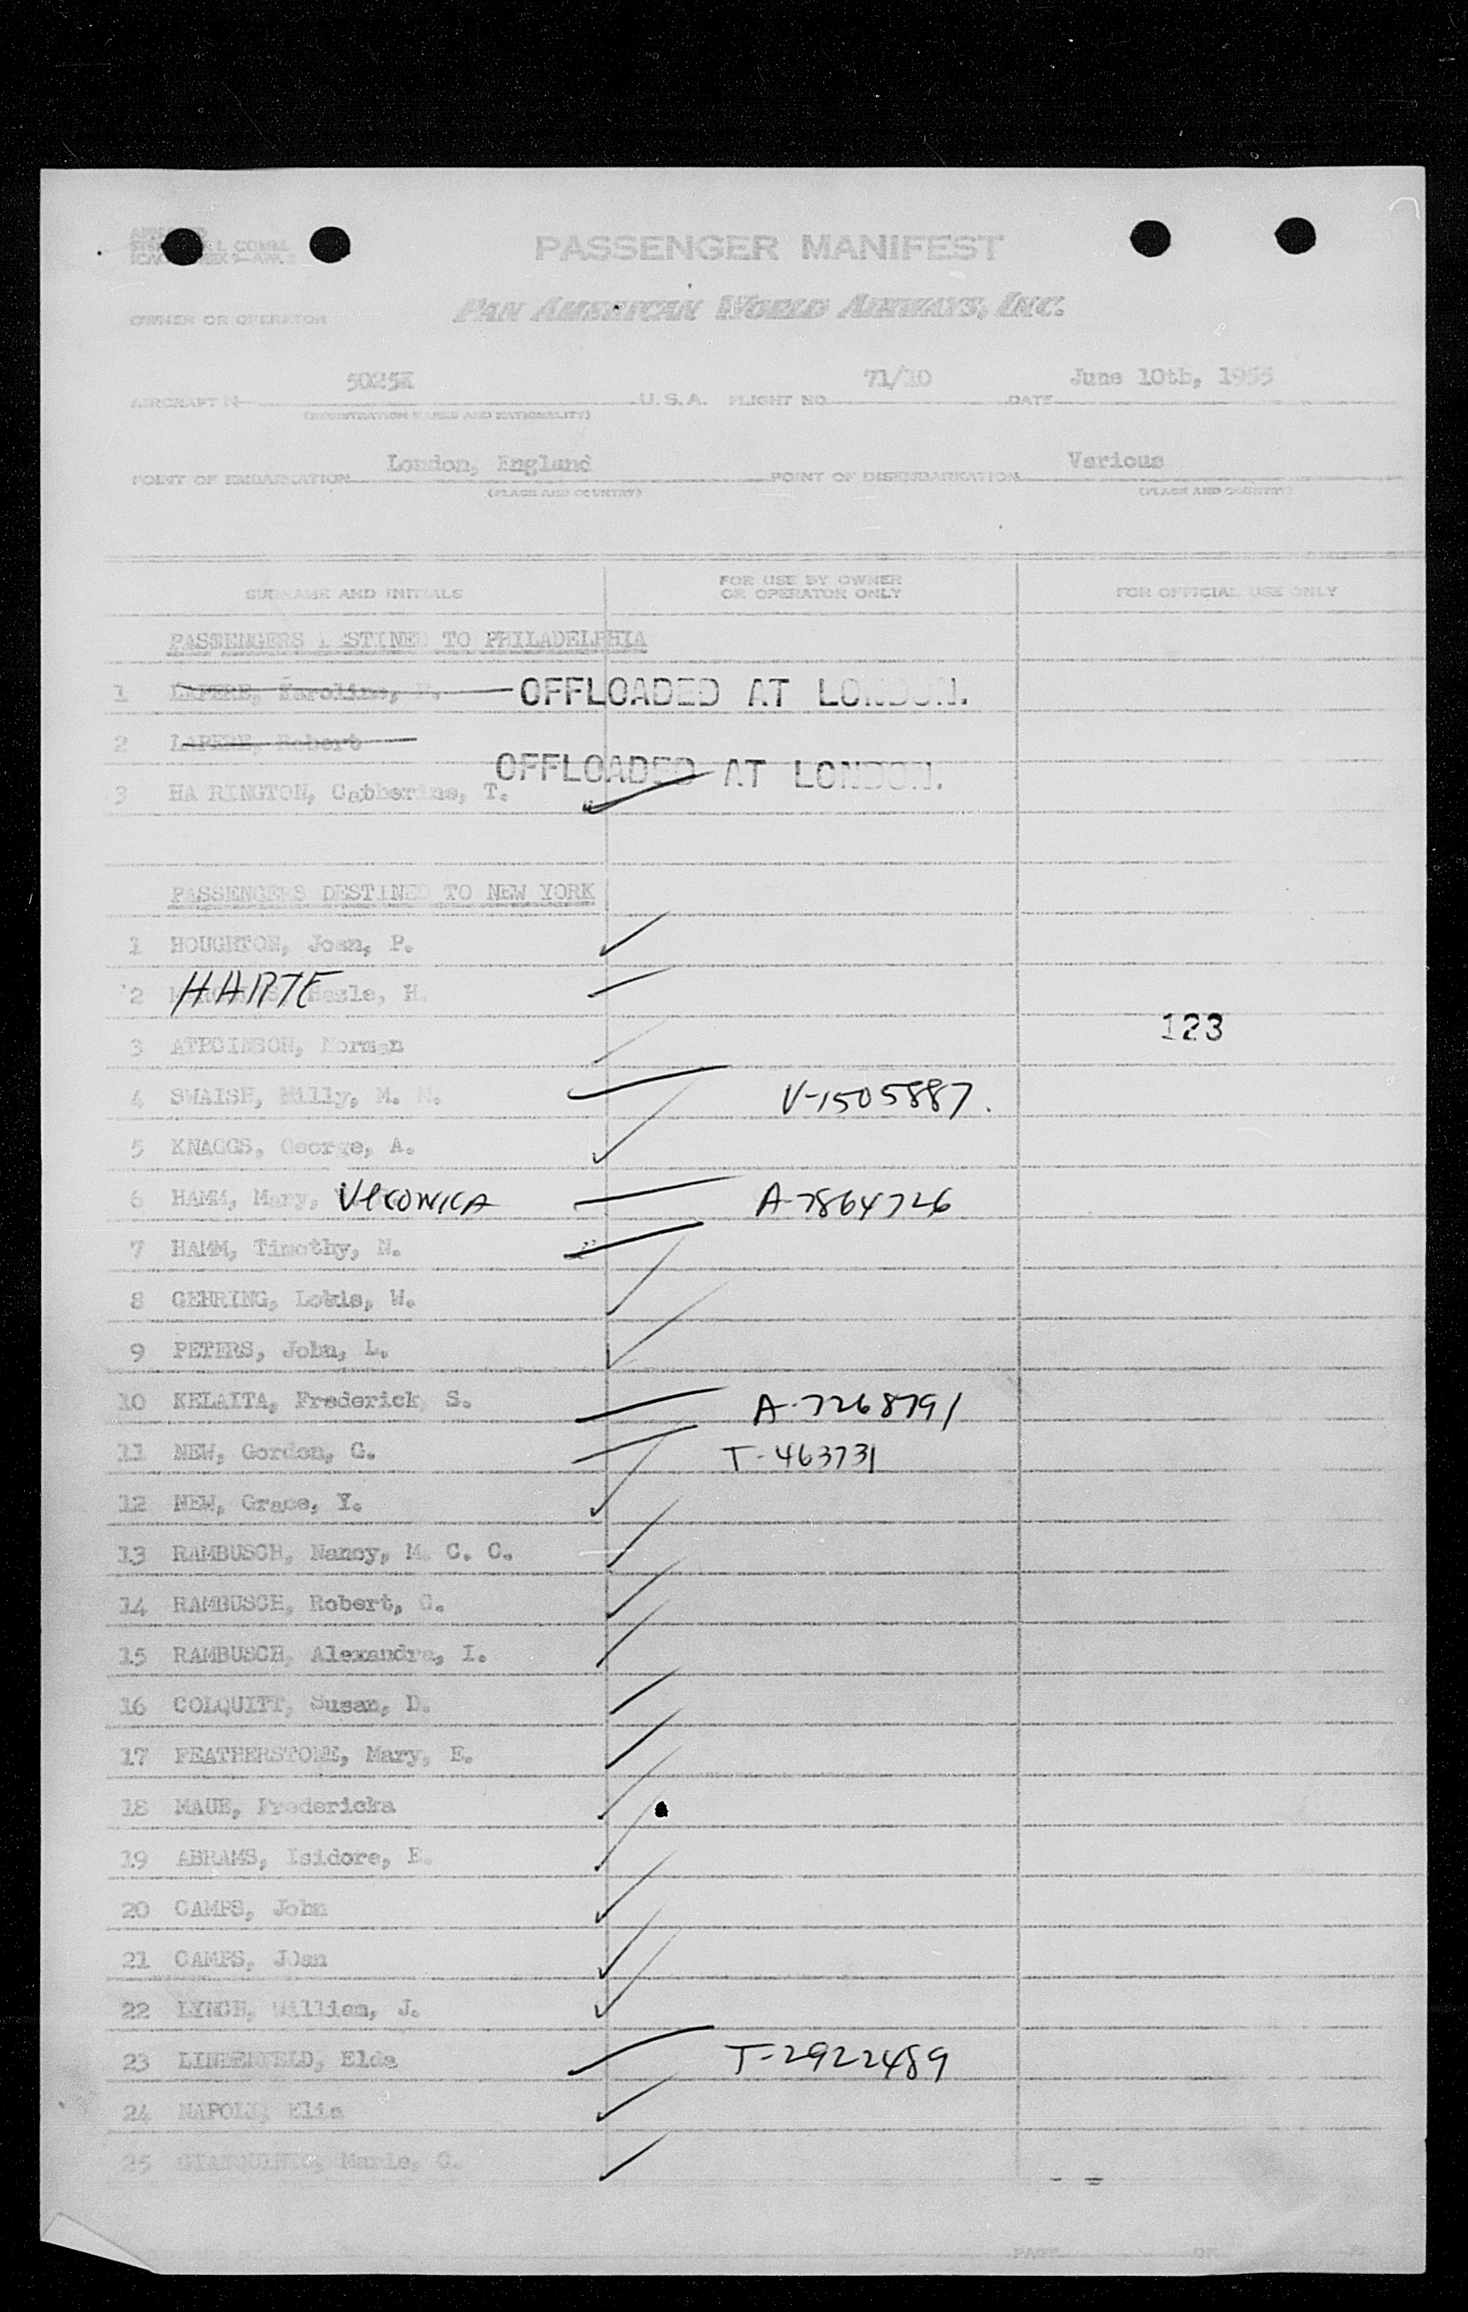 PASSENGER MANIFEST
PAN AMERICAN WORLD AIRWAYS, INC.
OWNER OR OPERATOR
AIRCRAFT N 5025K U.S.A. FLIGHT NO. 71/10 DATE June 10th, 1955
(REGISTRATION MARKS AND NATIONALITY)
POINT OF EMBARKATION London, England POINT OF DISEMBARKATION Various
(PLACE AND COUNTRY) (PLACE AND COUNTRY)
SURNAME AND INITIALS FOR USE BY OWNER OR OPERATOR ONLY FOR OFFICIAL USE ONLY
PASSENGERS DESTINED TO PHILADELPHIA
1 LAPERE, Karoline, OFFLOADED AT LONDON.
2 LAPERE, Robert
OFFLOADED AT LONDON.
3 HA RINGTON, Catherine, T.
PASSENGERS DESTINED TO NEW YORK
1 HOUGHTON, Joan, P.
2 HARTE H.
123
3 ATKCINSON, Norman
4 SWAISH, Milly, M. V-1505887.
5 KNAGGS, George, A.
6 HAMM, Mary, VERONICA A-7864726
7 HAMM, Timothy, N.
8 GEHRING, Louis, W.
9 PETERS, John, L.
10 KELAITA, Frederick S. A-7268791
11 NEW, Gordon, G. T-463731
12 NEW, Grace, Y.
13 RAMBUSCH, Nancy, M. C. C.
14 RAMBUSCH, Robert, C.
15 RAMBUSCH, Alexandra, I.
16 COLQUITT, Susan, D.
17 FEATHERSTONE, Mary, E.
18 MAUE, Fredericka
19 ABRAMS, Isidore, E.
20 CAMPS, John
21 CAMPS, Joan
22 LYNCH, William, J.
23 LINDENFELD, Elda T-2922489
24 NAPOLI, Elia
25 Marie, C.
PAGE OF